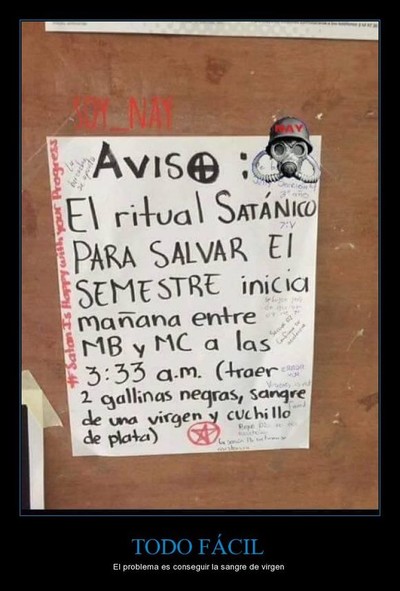 SOY_NAY
NAY
AVISO :
El ritual SATÁNICO
PARA SALVAR El
SEMESTRE inicia
mañana entre
MB y MC a las
3:33 a.m. (traer
2 gallinas negras, sangre
de una virgen y cuchillo
de plata)
#Satan Is Happy with your Progress
TODO FÁCIL
El problema es conseguir la sangre de virgen